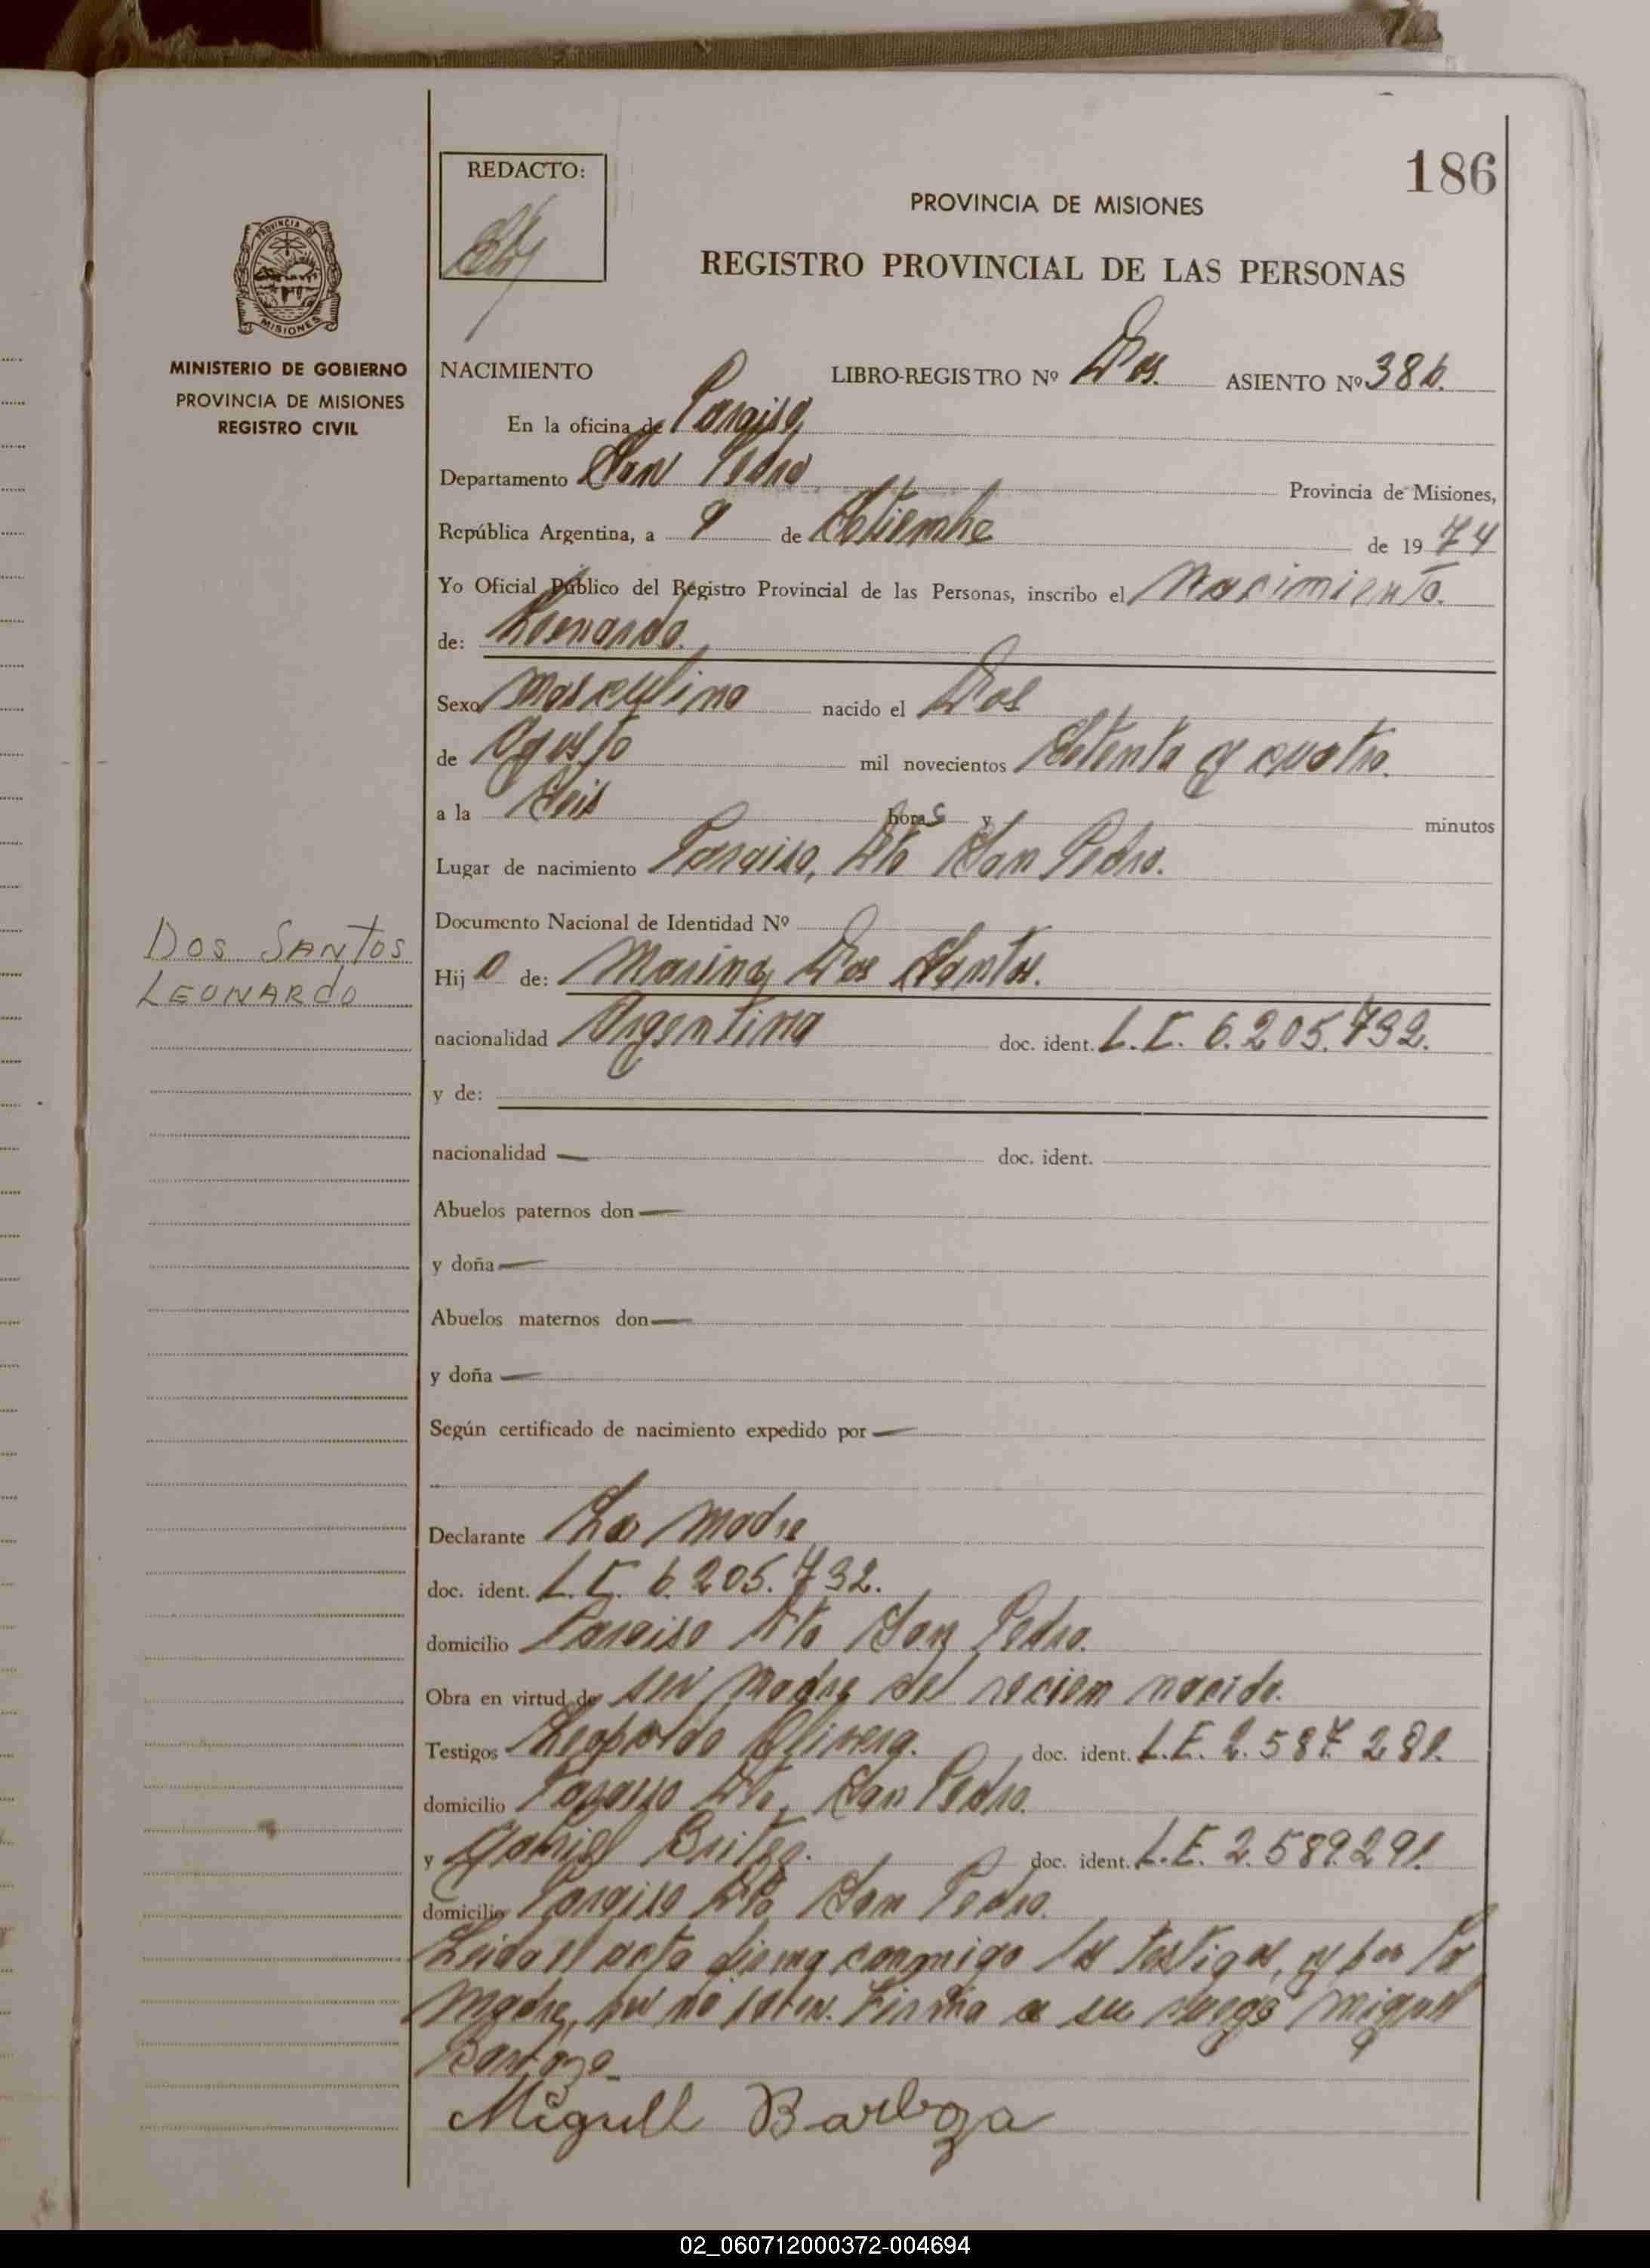 186
REDACTO:
PROVINCIA DE MISIONES
REGISTRO PROVINCIAL DE LAS PERSONAS
PROVINCIA DE
MISIONES
MINISTERIO DE GOBIERNO
PROVINCIA DE MISIONES
REGISTRO CIVIL
NACIMIENTO LIBRO-REGISTRO Nº Dos. ASIENTO Nº 386.
En la oficina de Paraiso,
Departamento San Pedro Provincia de Misiones,
República Argentina, a 9 de Setiembre de 1974
Yo Oficial Público del Registro Provincial de las Personas, inscribo el Nacimiento.
de: Leonardo.
Sexo Masculino nacido el Dos
de Agosto mil novecientos Setenta y cuatro.
a la Seis horas y minutos
Lugar de nacimiento Paraiso, Dto San Pedro.
Documento Nacional de Identidad Nº
DOS SANTOS
LEONARdO
Hijo de: Marina Dos Santos.
nacionalidad Argentina doc. ident. L.C. 6.205.732.
y de:
nacionalidad — doc. ident.
Abuelos paternos don —
y doña —
Abuelos maternos don —
y doña —
Según certificado de nacimiento expedido por —
Declarante La Madre
doc. ident. L.C. 6.205.732.
domicilio Paraiso Dto San Pedro.
Obra en virtud de ser Madre del recien nacido.
Testigos Leopoldo Olivera. doc. ident. L.E. 2.587.281.
domicilio Paraiso Dto, San Pedro.
y Gabriel Britez. doc. ident. L.E. 2.589.291.
domicilio Paraiso Dto San Pedro.
Leida el acta firma conmigo los testigos, y por la
Madre, por no saber. Firma a su ruego Miguel
Barboza.
Miguell Barboza
02_060712000372-004694